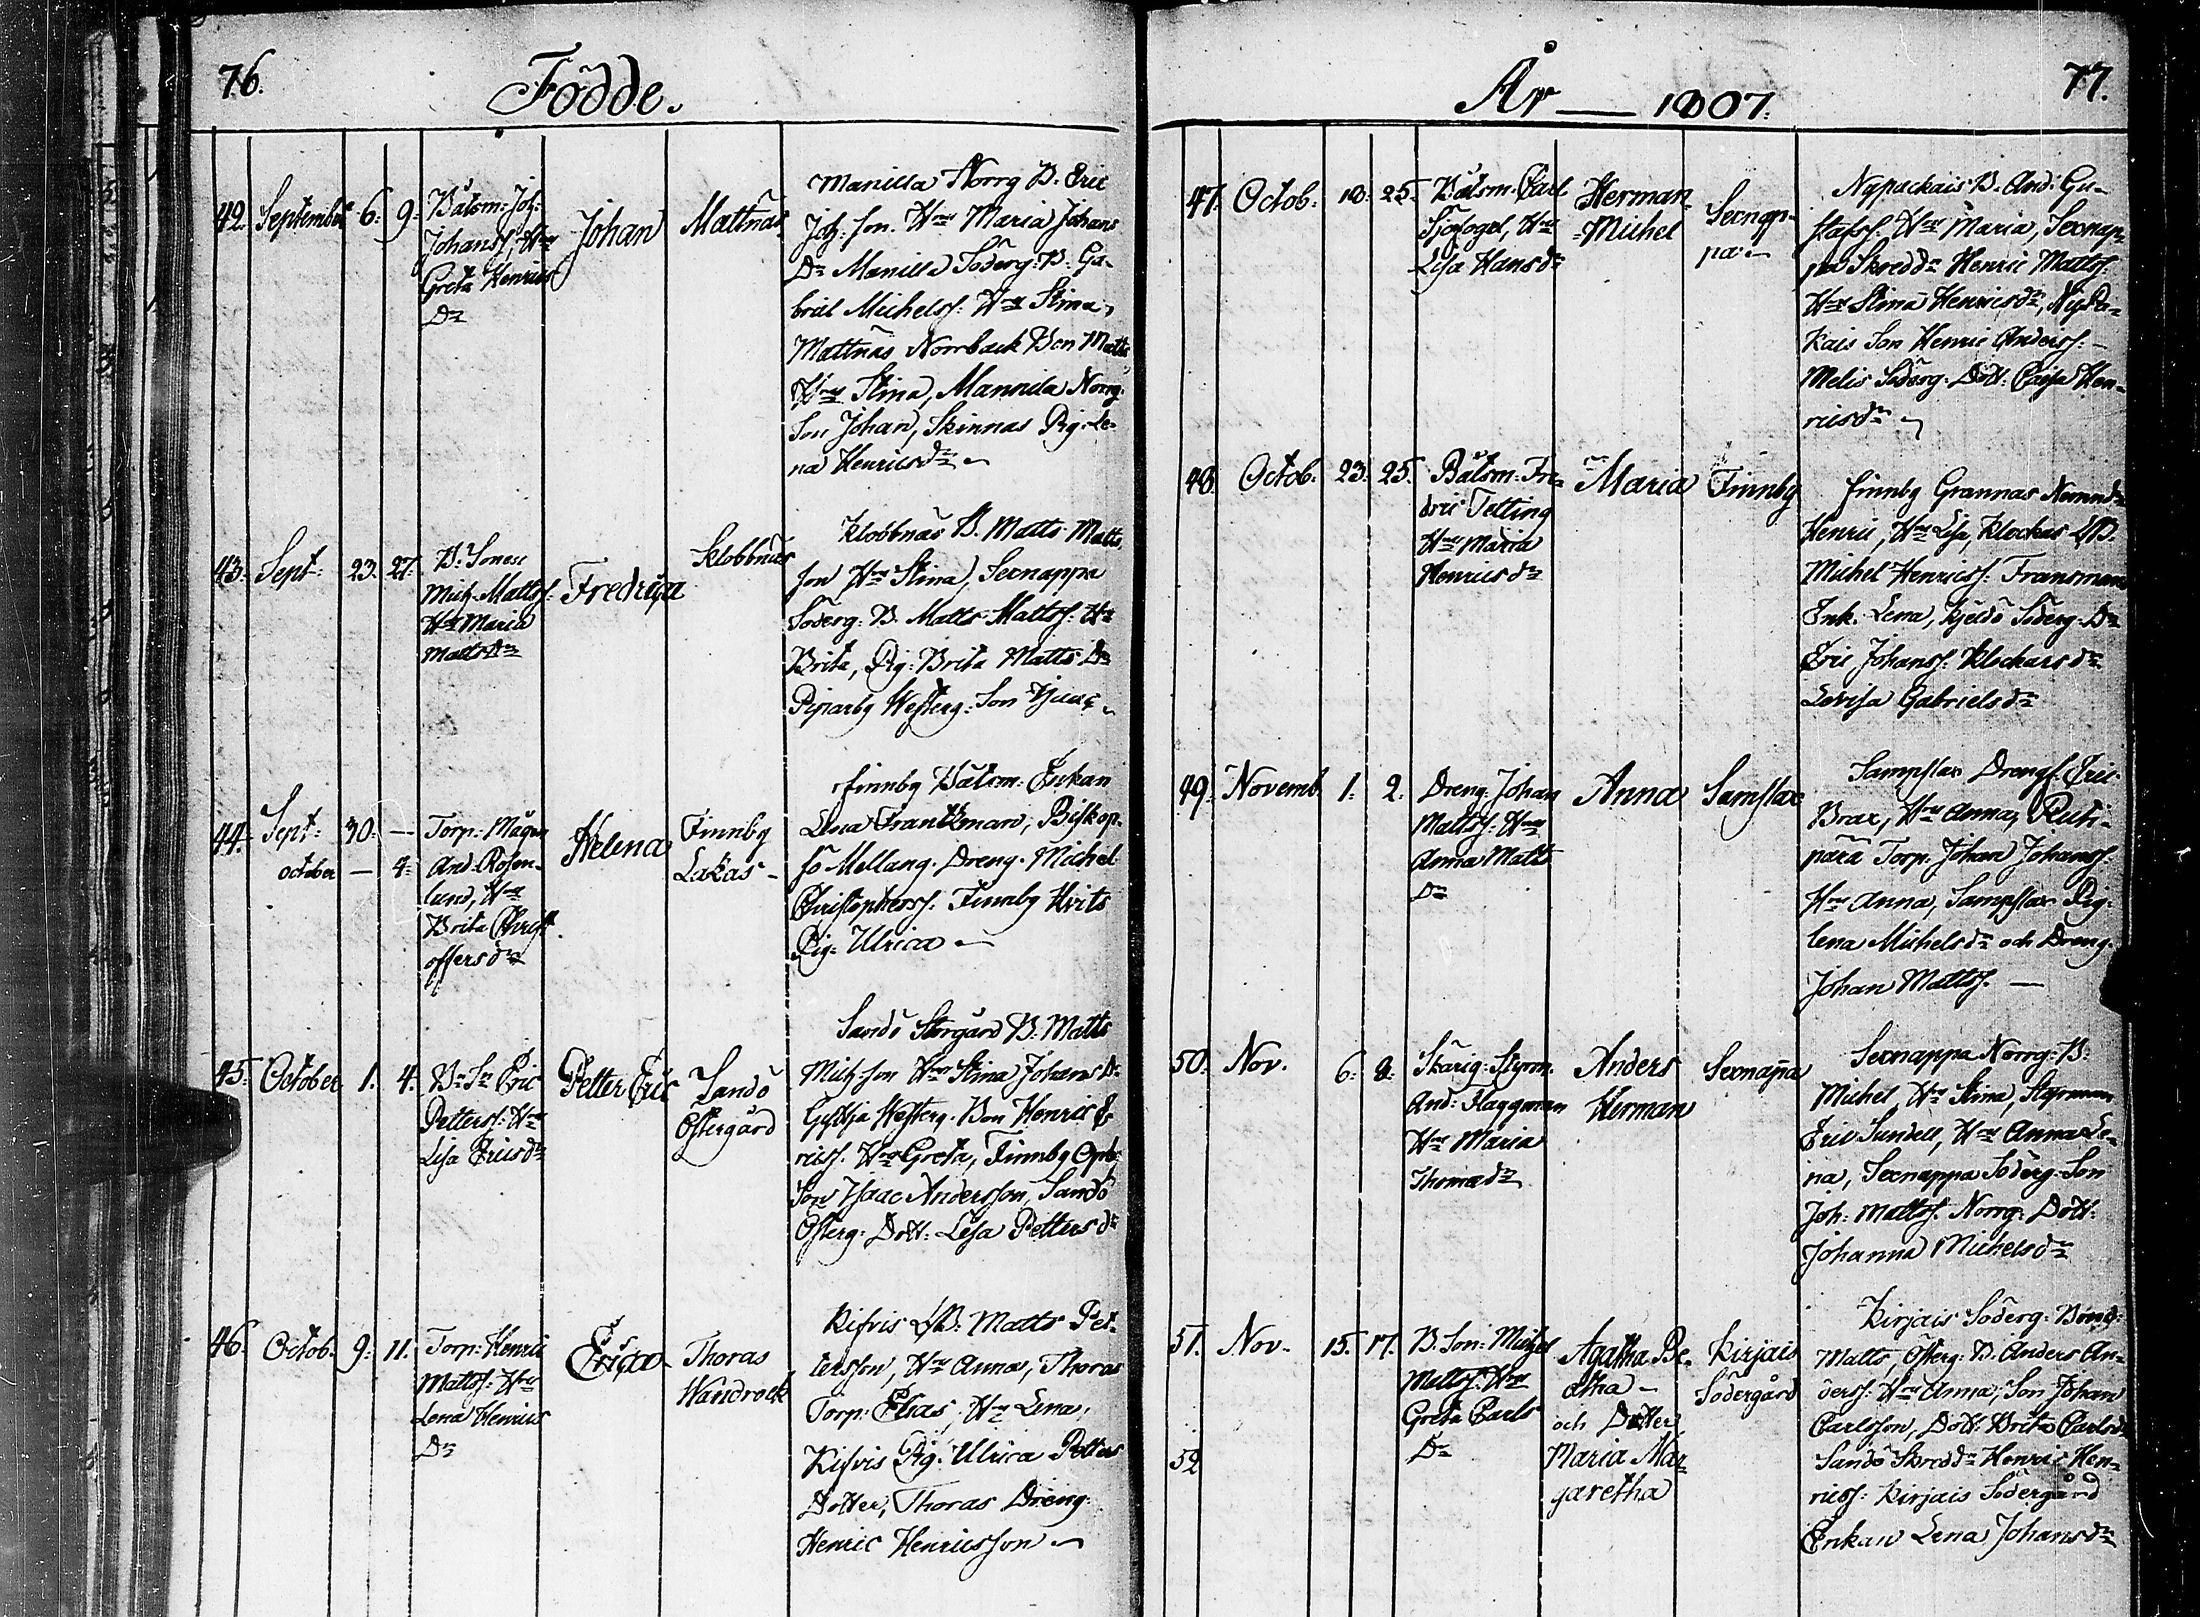 76.
Födde.
42. September 6. 9.
Båtsm: Joh:
Johanss: Hru
Greta Henrics
Dr
Johan
Mattnäs
Manilla Norrg B. Eric
Joh: son. Hru Maria Johans
Dr Manilla Söderg: B: Ga-
briel Michelss: Hru Stina,
Mattnäs Norrback Bon Matts
Hru Stina, Mannila Norrg:
Son Johan, Skinnas Pig: Le-
na Henricsdr
43. Sept: 23. 27.
B: Sonen
Mich: Mattss:
Hru Maria
Mattsdr
Fredrica
Klobbnäs
Klobbnäs B. Matts Matts
son Hru Stina, Sexnappa
Söderg: B. Matts Mattss: Hru
Brita, Pig: Brita Matts Dr
Piparby Westerg: Son Isaac
44. Sept: 30: —
october — 4:
Torp: Mågen
And. Rosen-
lund, Hru
Brita Christ
offersdr
Helena
Finnby
Lakas -
Finnby Båtsm: Enkan
Lena Frantzman, Biskop-
sö Mellang. Dreng. Michel
Christopherss: Finnby Hvits
Pig: Ulrica
45. October 1. 4.
Bn Sn Eric
Petterss: Hru
Lisa Ericsdr
Petter Eric
Sandö
Östergård
Sandö Storgård B: Matts
Mich: son Hru Stina Johans Dr
Gyttja Westerg. Bon Henric E
ricss. Hru Greta, Finnby
Son Isaac Andersson, Sandö
Österg: Dott: Lisa Pettersdr
46. Octob. 9. 11.
Torp: Henric
Mattss: Hru
Lena Henrics
Dr
Erica
Thoras
Wandrock
Kifvis B: Matts Pet-
tersson, Hru Anna, Thoras
Torp: Elias, Hru Lena,
Kifvis Pig: Ulrica Petters
Dotter, Thoras Dreng:
Henric Henricsson
År — 1807.
77.
47. Octob: 18: 25.
Båtsm. Carl
Sjöfogel, Hru
Lisa Hansdr
Herman
=Michel
Sexnap-
pa
Nypackais B. And: Gu-
stafss: Hru Maria, Sexnap-
pa Skreddr Henric Mattss:
Hru Stina Henricsdr, Nypa-
kais Son Henric Anderss: -
Melis Söderg. Dott: Caisa Hen-
ricsdr
48. Octob. 23. 25.
Båtsm: Fre-
dric Telting
Hru Maria
Henricsdr
Maria
Finnby
Finnby Grannas Nemnd:
Henric, Hru Lisa, Klockas B.
Michel Henricss: Fransmans
Enk. Lena, Kjeldö Söderg. Dr
Eric Johanss: Klockarsdr
Lovisa Gabrielsdr
49. Novemb. 1. 2.
Dreng: Johan
Mattss: Hru
Anna Matts
Dr
Anna
Samslax
Sampslax Drengf. Eric
Brax, Hru Anna, Ruti-
pära Torp. Johan Johanss:
Hru Anna, Sampslax Pig:
lena Michelsdr och Dreng:
Johan Mattss. —
50. Nov. 6. 8.
Skärig: Styrm.
And: Flaggman
Hru Maria
Thomædr
Anders
Herman
Sexnappa
Sexnappa Norrg: B:
Michel Hru Stina, Styrman
Eric Sundell, Hru Anna Le-
na, Sexnappa Söderg. Son
Joh: Mattss. Norrg: Dott:
Johanna Michelsdr
51. Nov. 15. 17.
B. Son: Michel
Mattss: Hru
Greta Carls
Dr
Agatha Be-
atha -
och Dotter
52
Maria Mar-
garetha
Kirjais
Södergård
Kirjais Söderg: Bond:
Matts, Österg: B. Anders An-
derss: Hru Anna, Son Johan
Carlsson, Dott: Brita Carlsdr
Sandö Skreddr Henric Hen-
ricss: Kirjais Södergård
Enkan Lena Johansdr